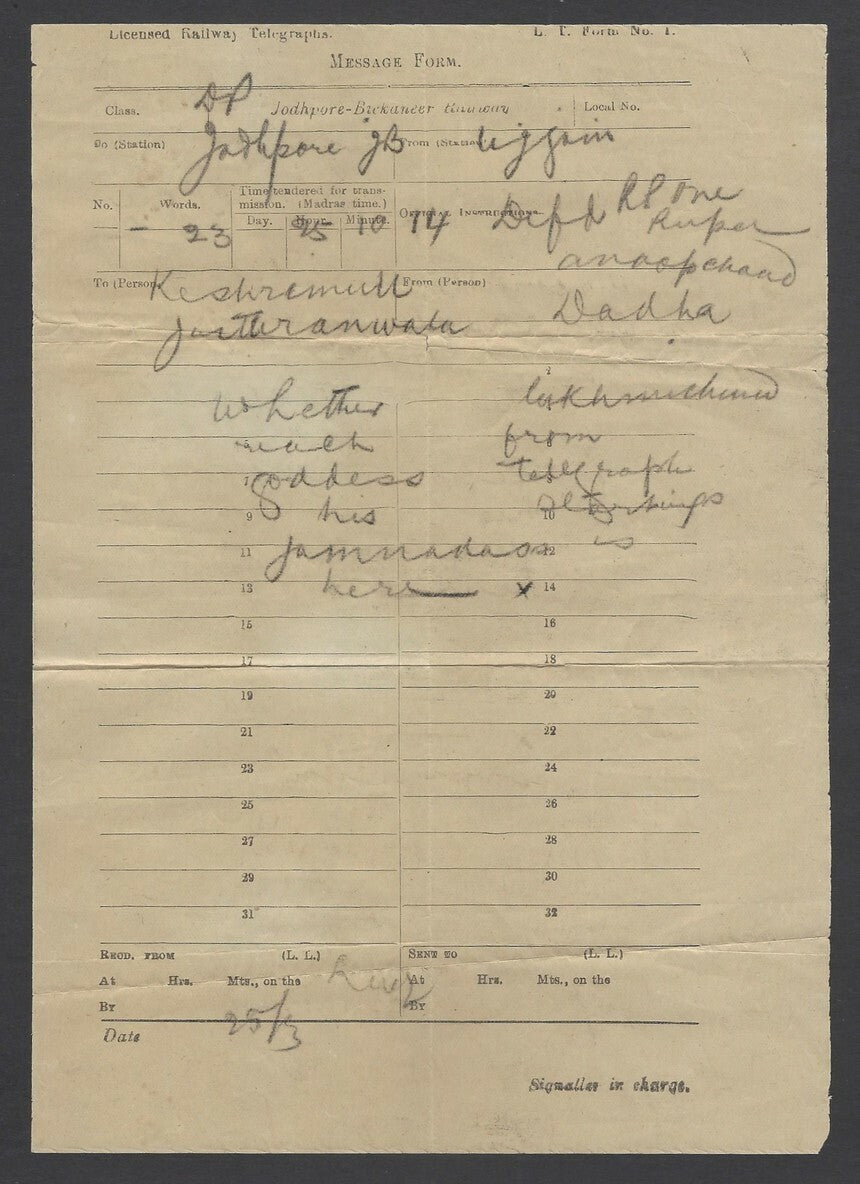 Licensed Railway Telegraphs. L. T. Form No. 1.
MESSAGE FORM.
Class. DP Jodhpore-Bickaneer Railway Local No.
To (Station) Jodhpore From (Station) Ujjain
No. Words. Time tendered for trans-mission. (Madras time.) Official Instructions
Day. Hour. Minute.
23 25 10 14 RP one
anoopchand
To (Person) Keshremull From (Person) Dadha
whether lakhmichand
reach from
7 goddess telegraph
9 his 10
11 Jamnadass 12 is
13 here x 14
15 16
17 18
19 20
21 22
23 24
25 26
27 28
29 30
31 32
RECD. FROM (L. L.) SENT TO (L. L.)
At Hrs. Mts., on the At Hrs. Mts., on the
By By
25/3
Date
Signaller in charge.